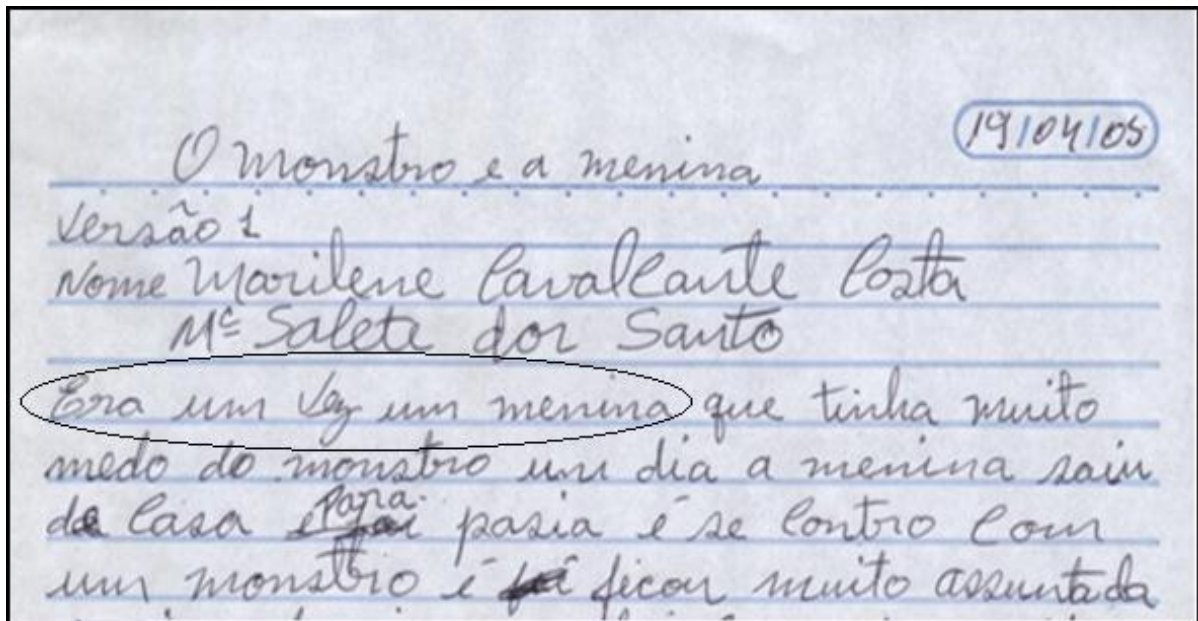 19/04/05
O monstro e a menina
Versão 1
Nome Marilene Cavalcante Costa
Mª Salete dor Santo
Era um vez um menina que tinha muito
medo do monstro um dia a menina saiu
de casa para pasia é se contro com
um monstro é ficou muito assuntada